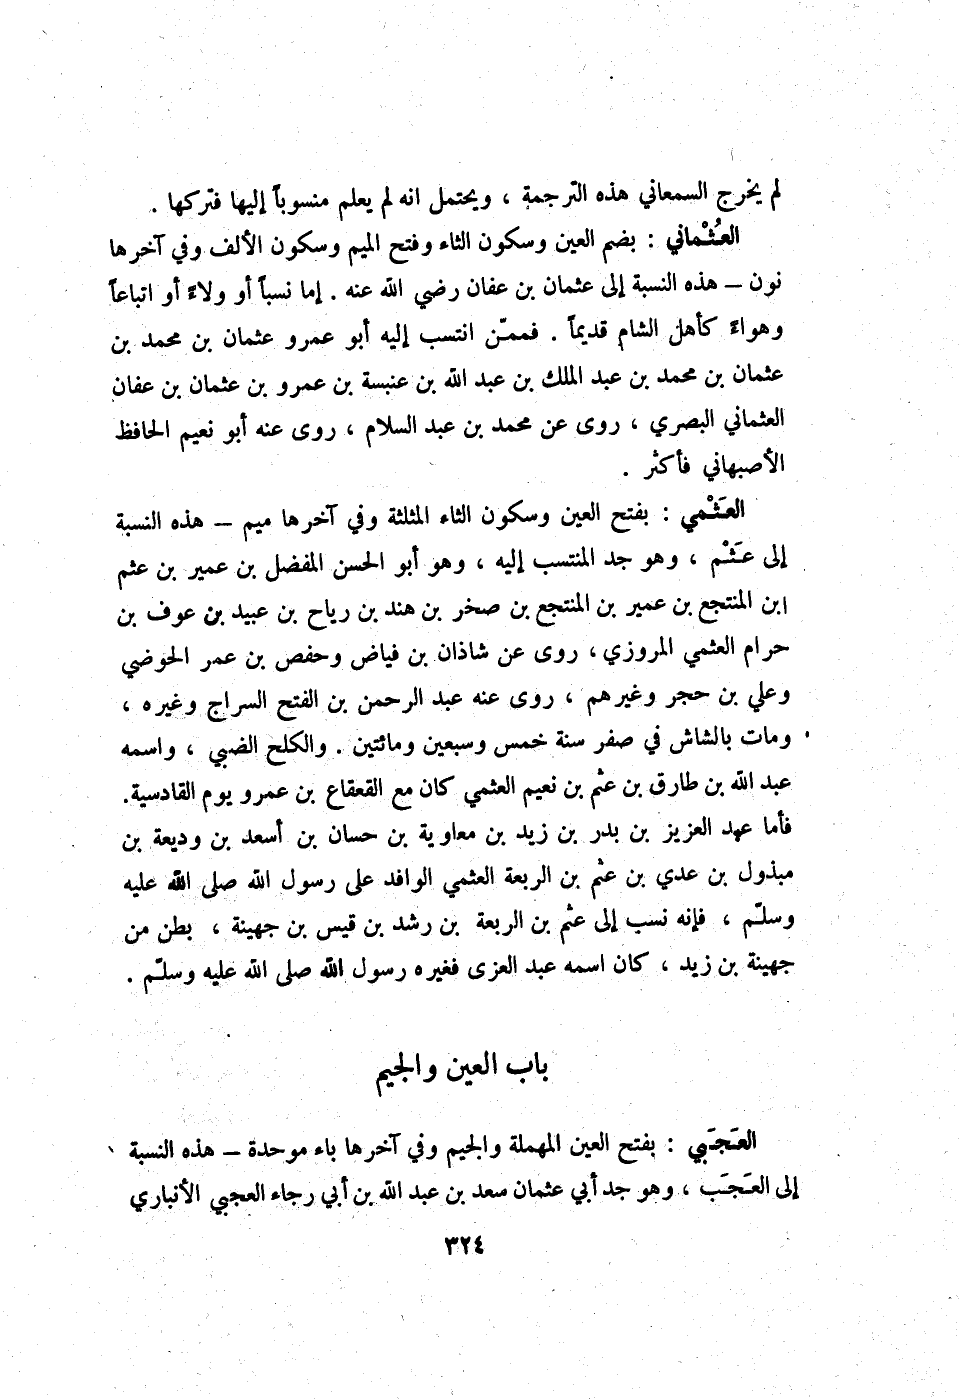 لم يخرج السمعاني هذه الترجمة ، ويحتمل انه لم يعلم منسوباً إليها فتركها .
العُثْماني : بضم العين وسكون الثاء وفتح الميم وسكون الألف وفي آخرها
نون — هذه النسبة إلى عثمان بن عفان رضي الله عنه . إما نسباً أو ولاءً أو اتباعاً
وهواءً كأهل الشام قديماً . فممّن انتسب إليه أبو عمرو عثمان بن محمد بن
عثمان بن محمد بن عبد الملك بن عبد الله بن عنبسة بن عمرو بن عثمان بن عفان
العثماني البصري ، روى عن محمد بن عبد السلام ، روى عنه أبو نعيم الحافظ
الأصبهاني فأكثر .
العَثْمي : بفتح العين وسكون الثاء المثلثة وفي آخرها ميم — هذه النسبة
إلى عَثْم ، وهو جد المنتسب إليه ، وهو أبو الحسن المفضل بن عمير بن عثم
ابن المنتجع بن عمير بن المنتجع بن صخر بن هند بن رياح بن عبيد بن عوف بن
حرام العثمي المروزي ، روى عن شاذان بن فياض وحفص بن عمر الحوضي
وعلي بن حجر وغيرهم ، روى عنه عبد الرحمن بن الفتح السراج وغيره ،
ومات بالشاش في صفر سنة خمس وسبعين ومائتين . والكلح الضبي ، واسمه
عبد الله بن طارق بن عثم بن نعيم العثمي كان مع القعقاع بن عمرو يوم القادسية.
فأما عبد العزيز بن بدر بن زيد بن معاوية بن حسان بن أسعد بن وديعة بن
مبذول بن عدي بن عثم بن الربعة العثمي الوافد على رسول الله صلى الله عليه
وسلّم ، فإنه نسب إلى عثم بن الربعة بن رشد بن قيس بن جهينة ، بطن من
جهينة بن زيد ، كان اسمه عبد العزى فغيره رسول الله صلى الله عليه وسلّم .
باب العين والجيم
العَجَبي : بفتح العين المهملة والجيم وفي آخرها باء موحدة — هذه النسبة
إلى العَجَب ، وهو جد أبي عثمان سعد بن عبد الله بن أبي رجاء العجبي الأنباري
٣٢٤